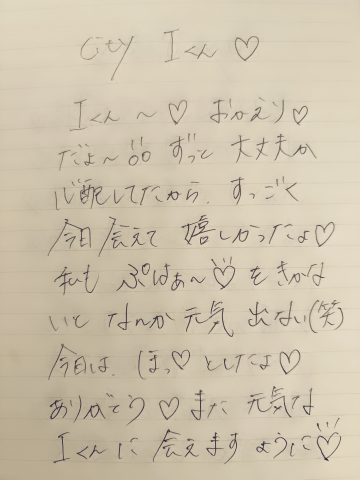 City Iくん♡
Iくん～♡ おかえり♡
だよ～!!! ずっと 大丈夫か
心配してたから、すっごく
今日 会えて 嬉しかったよ♡
私も ぷはぁ～♡ をきかな
いと なんか 元気 出ない(笑)
今日は、ほっ♡ としたよ♡
ありがとう♡ また 元気な
Iくんに 会えますように♡